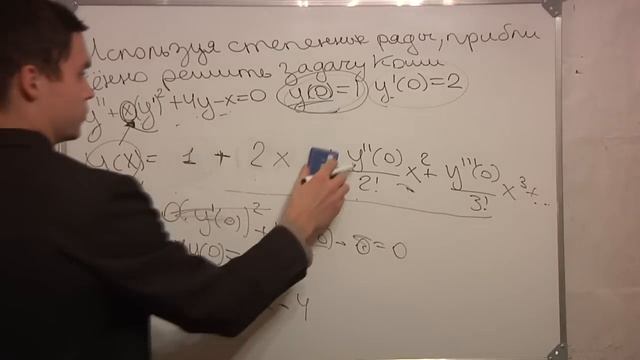 Используя степенные ряды, прибли
жённо решить задачу Коши
y'' + x(y')² + 4y - x = 0 y(0) = 1 y'(0) = 2
y(x) = 1 + 2x y''(0)/2! x² + y'''(0)/3! x³ + ...
y'(0)² + - 0 = 0
y(0) =
- 4